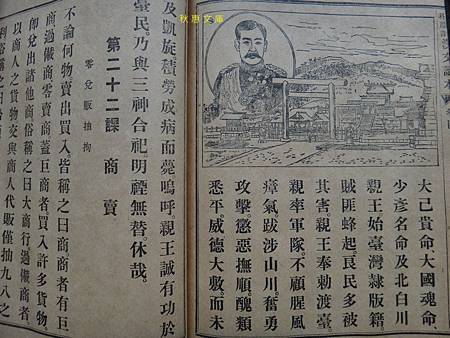 秋惠文庫
漢文讀本
大己貴命大國魂命、
少彥名命及北白川
親王始臺灣隸版籍、
賊匪蜂起、良民多被
其害。親王奉勅渡臺、
親率軍隊、不顧腥風
瘴氣跋涉山川、奮勇
攻擊、懲惡撫順、醜類
悉平。威德大敷。而未
及凱旋、積勞成病而薨。嗚呼。親王誠有功於
臺民。乃與三神合祀。明禋無替休哉。
第二十二課　商賣
零兌販抽拘
不論何物、賣出買入、皆稱之曰商。商者有巨
商過儎商零賣商。蓋巨商者、買入許多貨物、
即兌出諸他商、俗稱之曰大商行。過儎商者、
以商人之貨物、交與商人代販、僅抽九八之
利、俗稱之曰